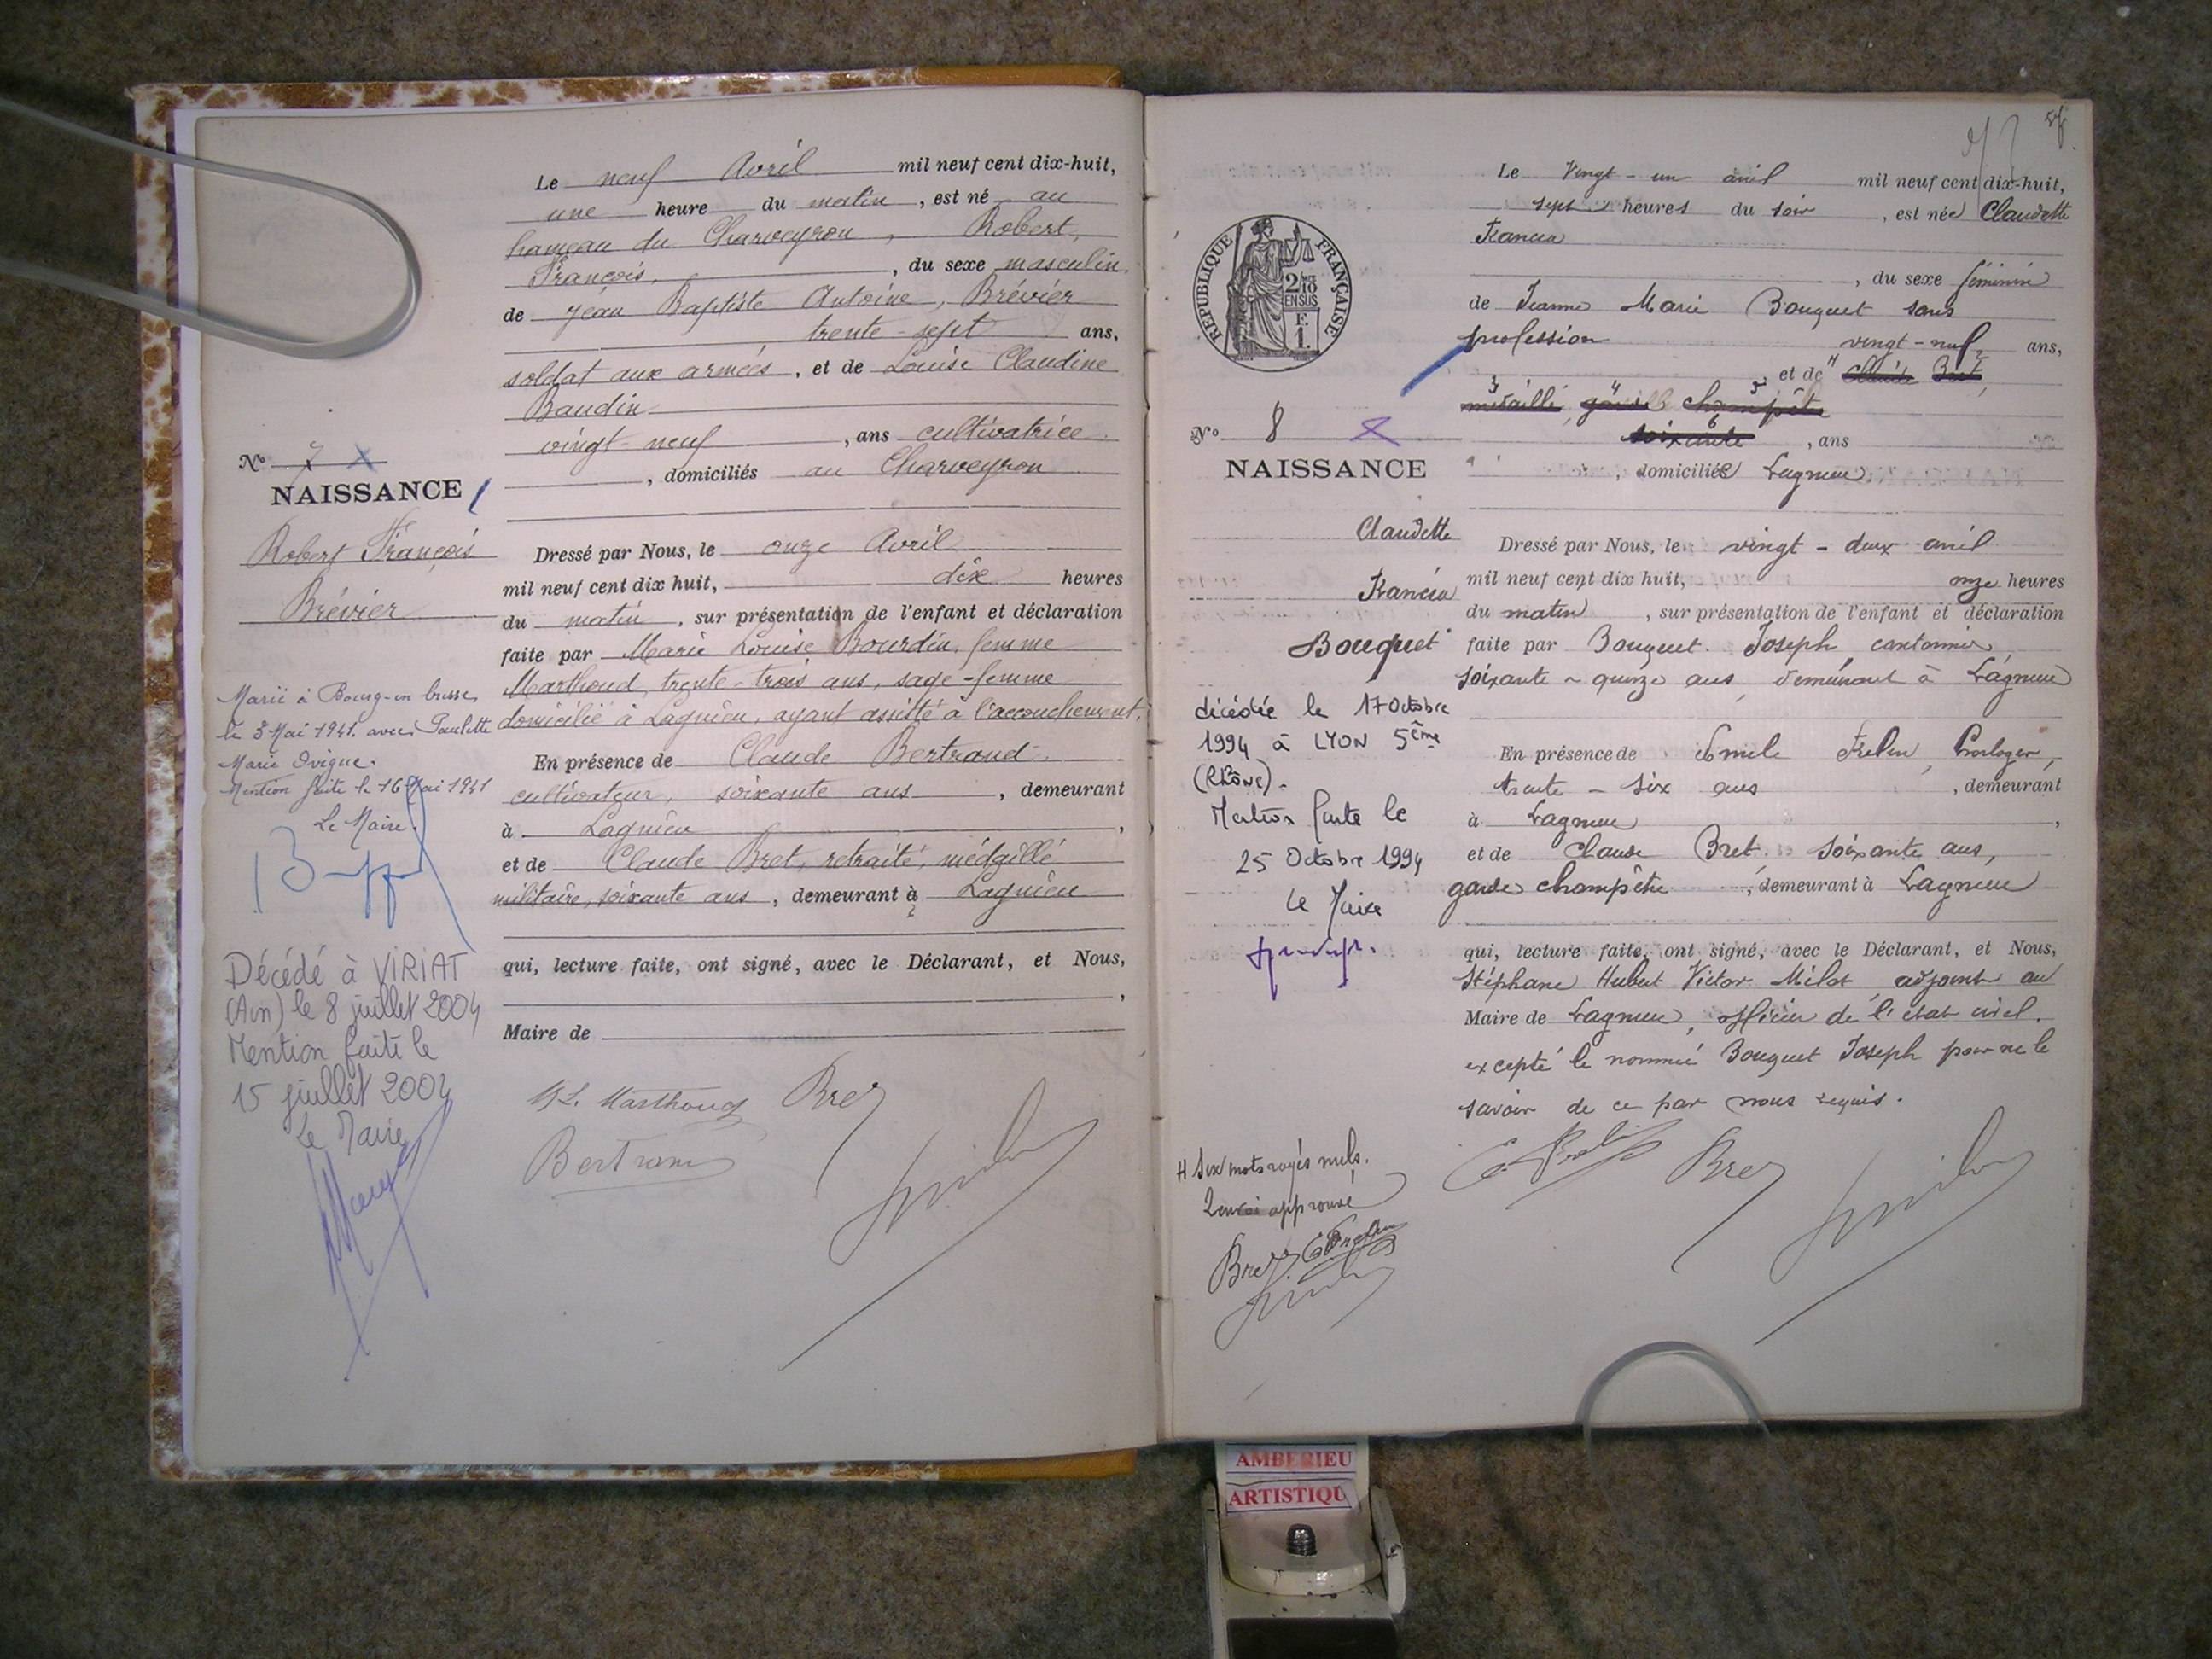 Le neuf Avril mil neuf cent dix-huit,
une heure du matin, est né au
hameau du Charveyron, Robert,
François, du sexe masculin,
de Jean Baptiste Antoine, Brévier
trente-sept ans,
soldat aux armées, et de Louise Claudine
Baudin
vingt-neuf, ans cultivatrice
, domiciliés au Charveyron
N° 7
NAISSANCE
Robert François
Brévier
Dressé par Nous, le onze Avril
mil neuf cent dix huit, dix heures
du matin, sur présentation de l'enfant et déclaration
faite par Marie Louise Bourdin, femme
Marthoud, trente-trois ans, sage-femme
domiciliée à Lagnieu, ayant assisté à l'accouchement.
En présence de Claude Bertrand
cultivateur, soixante ans, demeurant
à Lagnieu,
et de Claude Bret, retraité, médaillé
militaire, soixante ans, demeurant à Lagnieu
qui, lecture faite, ont signé, avec le Déclarant, et Nous,
Maire de
Marié à Bourg-en-bresse
le 3 Mai 1941 avec Paulette
Marie Ovigue.
Mention faite le 16 Mai 1941
Le Maire.
Décédé à VIRIAT
(Ain) le 8 juillet 2004
Mention faite le
15 juillet 2004
Le Maire
M L. Marthoud Bret
Bertrand
Le Vingt-un avril mil neuf cent dix-huit,
sept heures du soir, est née Claudette
Francia
, du sexe féminin
de Jeanne Marie Bouquet sans
profession vingt-neuf ans,
et de Claude Bret,
médaillé, garde champêtre
soixante, ans
, domiciliée Lagnieu
RÉPUBLIQUE FRANÇAISE
2/10 EN SUS
F. 1.
N° 8
NAISSANCE
Claudette
Francia
Bouquet
Dressé par Nous, le vingt-deux avril
mil neuf cent dix huit, onze heures
du matin, sur présentation de l'enfant et déclaration
faite par Bouquet Joseph cantonnier
soixante-quinze ans, demeurant à Lagnieu
En présence de Emile Frelin, horloger,
trente-six ans, demeurant
à Lagnieu,
et de Claude Bret soixante ans,
garde champêtre, demeurant à Lagnieu
qui, lecture faite, ont signé, avec le Déclarant, et Nous,
Stéphane Hubert Victor Milot adjoint au
Maire de Lagnieu, officier de l'état civil.
excepté le nommé Bouquet Joseph pour ne le
savoir de ce par nous requis.
décédée le 17 Octobre
1994 à LYON 5ème
(Rhône).
Mention faite le
25 Octobre 1994
Le Maire
Six mots rayés nuls.
Renvoi approuvé
Bret E Frelin
E. Frelin Bret
AMBERIEU
ARTISTIQU